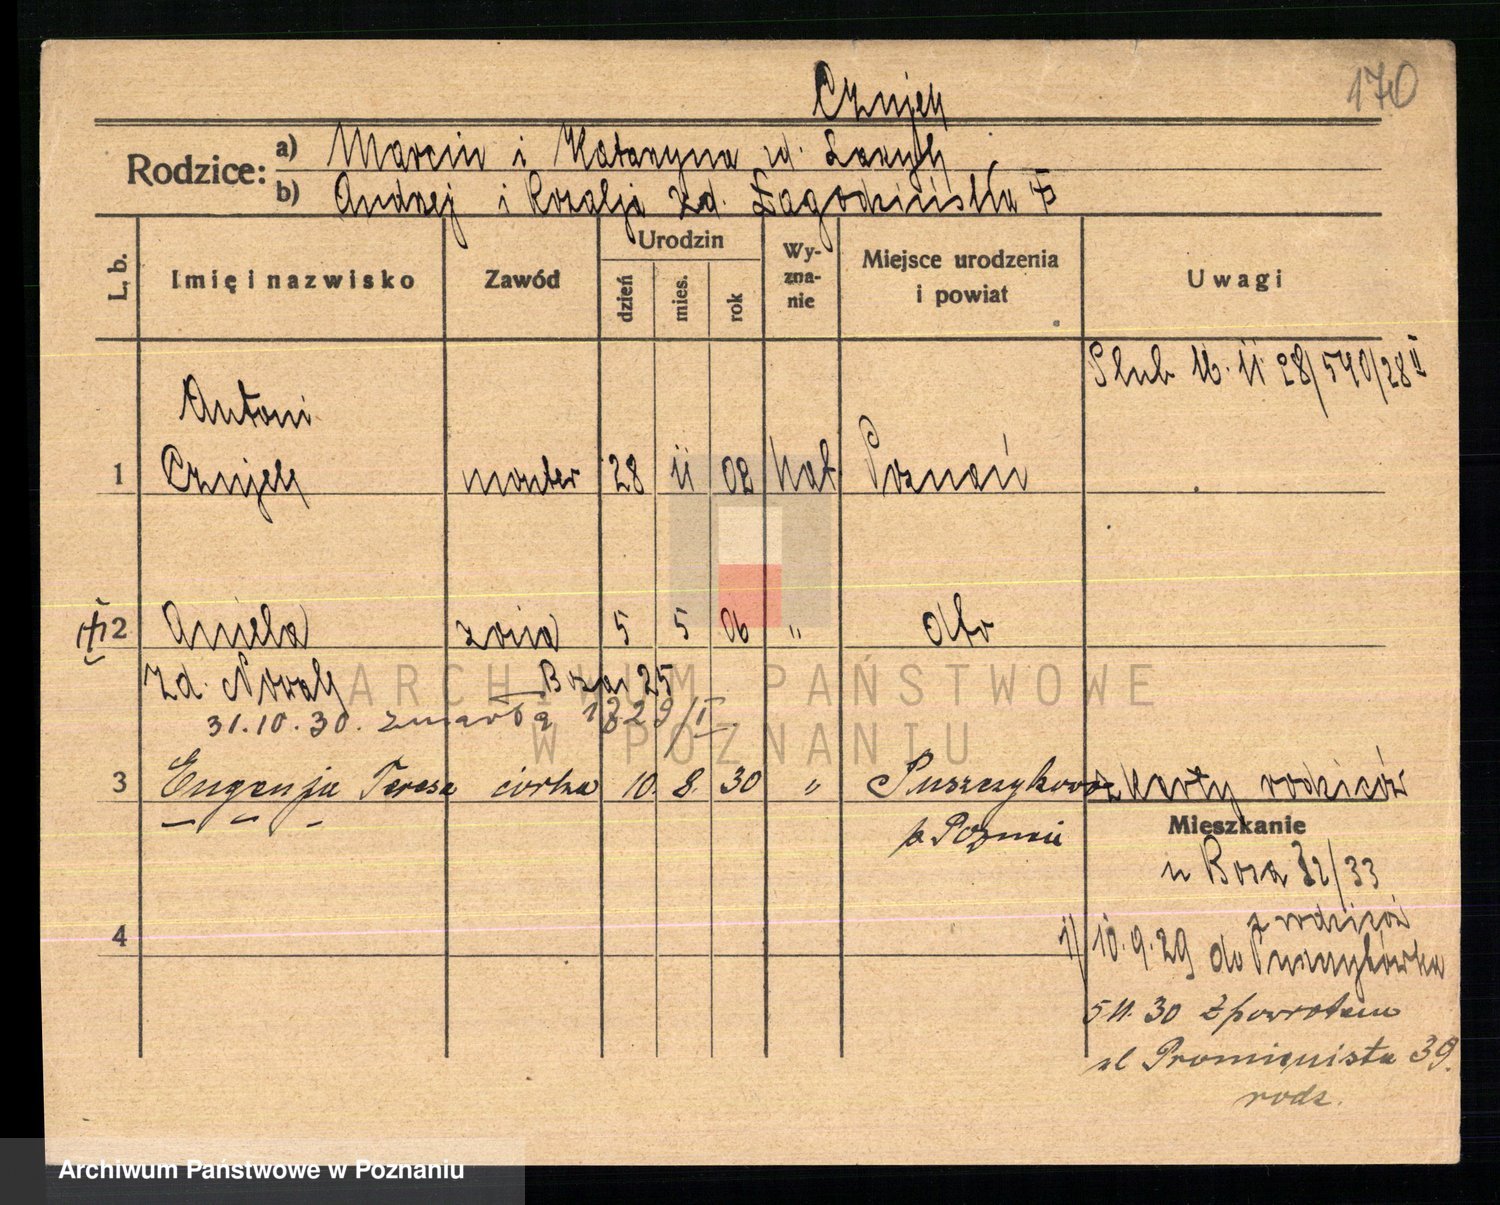 170
Czujek
Rodzice: a) Marcin i Katarzyna zd.
b) Andrzej i Rozalja zd. Żagodzińska
L. b.
Imię i nazwisko
Zawód
Urodzin
dzień
mies.
rok
Wy-
zna-
nie
Miejsce urodzenia
i powiat
Uwagi
Ślub 16. 11 28/540/28 II
Antoni
1 Czujek monter 28 11 02 kat Poznań
2 Aniela żona 5 5 06 „ dto
zd. Nowak Boża 25
31.10.30. zmarła 1829/II.
3 Eugenja Teresa córka 10. 8. 30 „ Puszczykowo z karty rodziców
p. Poznań
Mieszkanie
Boża 32/33
4
z rodziców
1) 10.9.29 do Puszczykówka
5 11. 30 z powrotem
ul Promienista 39.
rodz.
ARCHIWUM PAŃSTWOWE
W POZNANIU
Archiwum Państwowe w Poznaniu